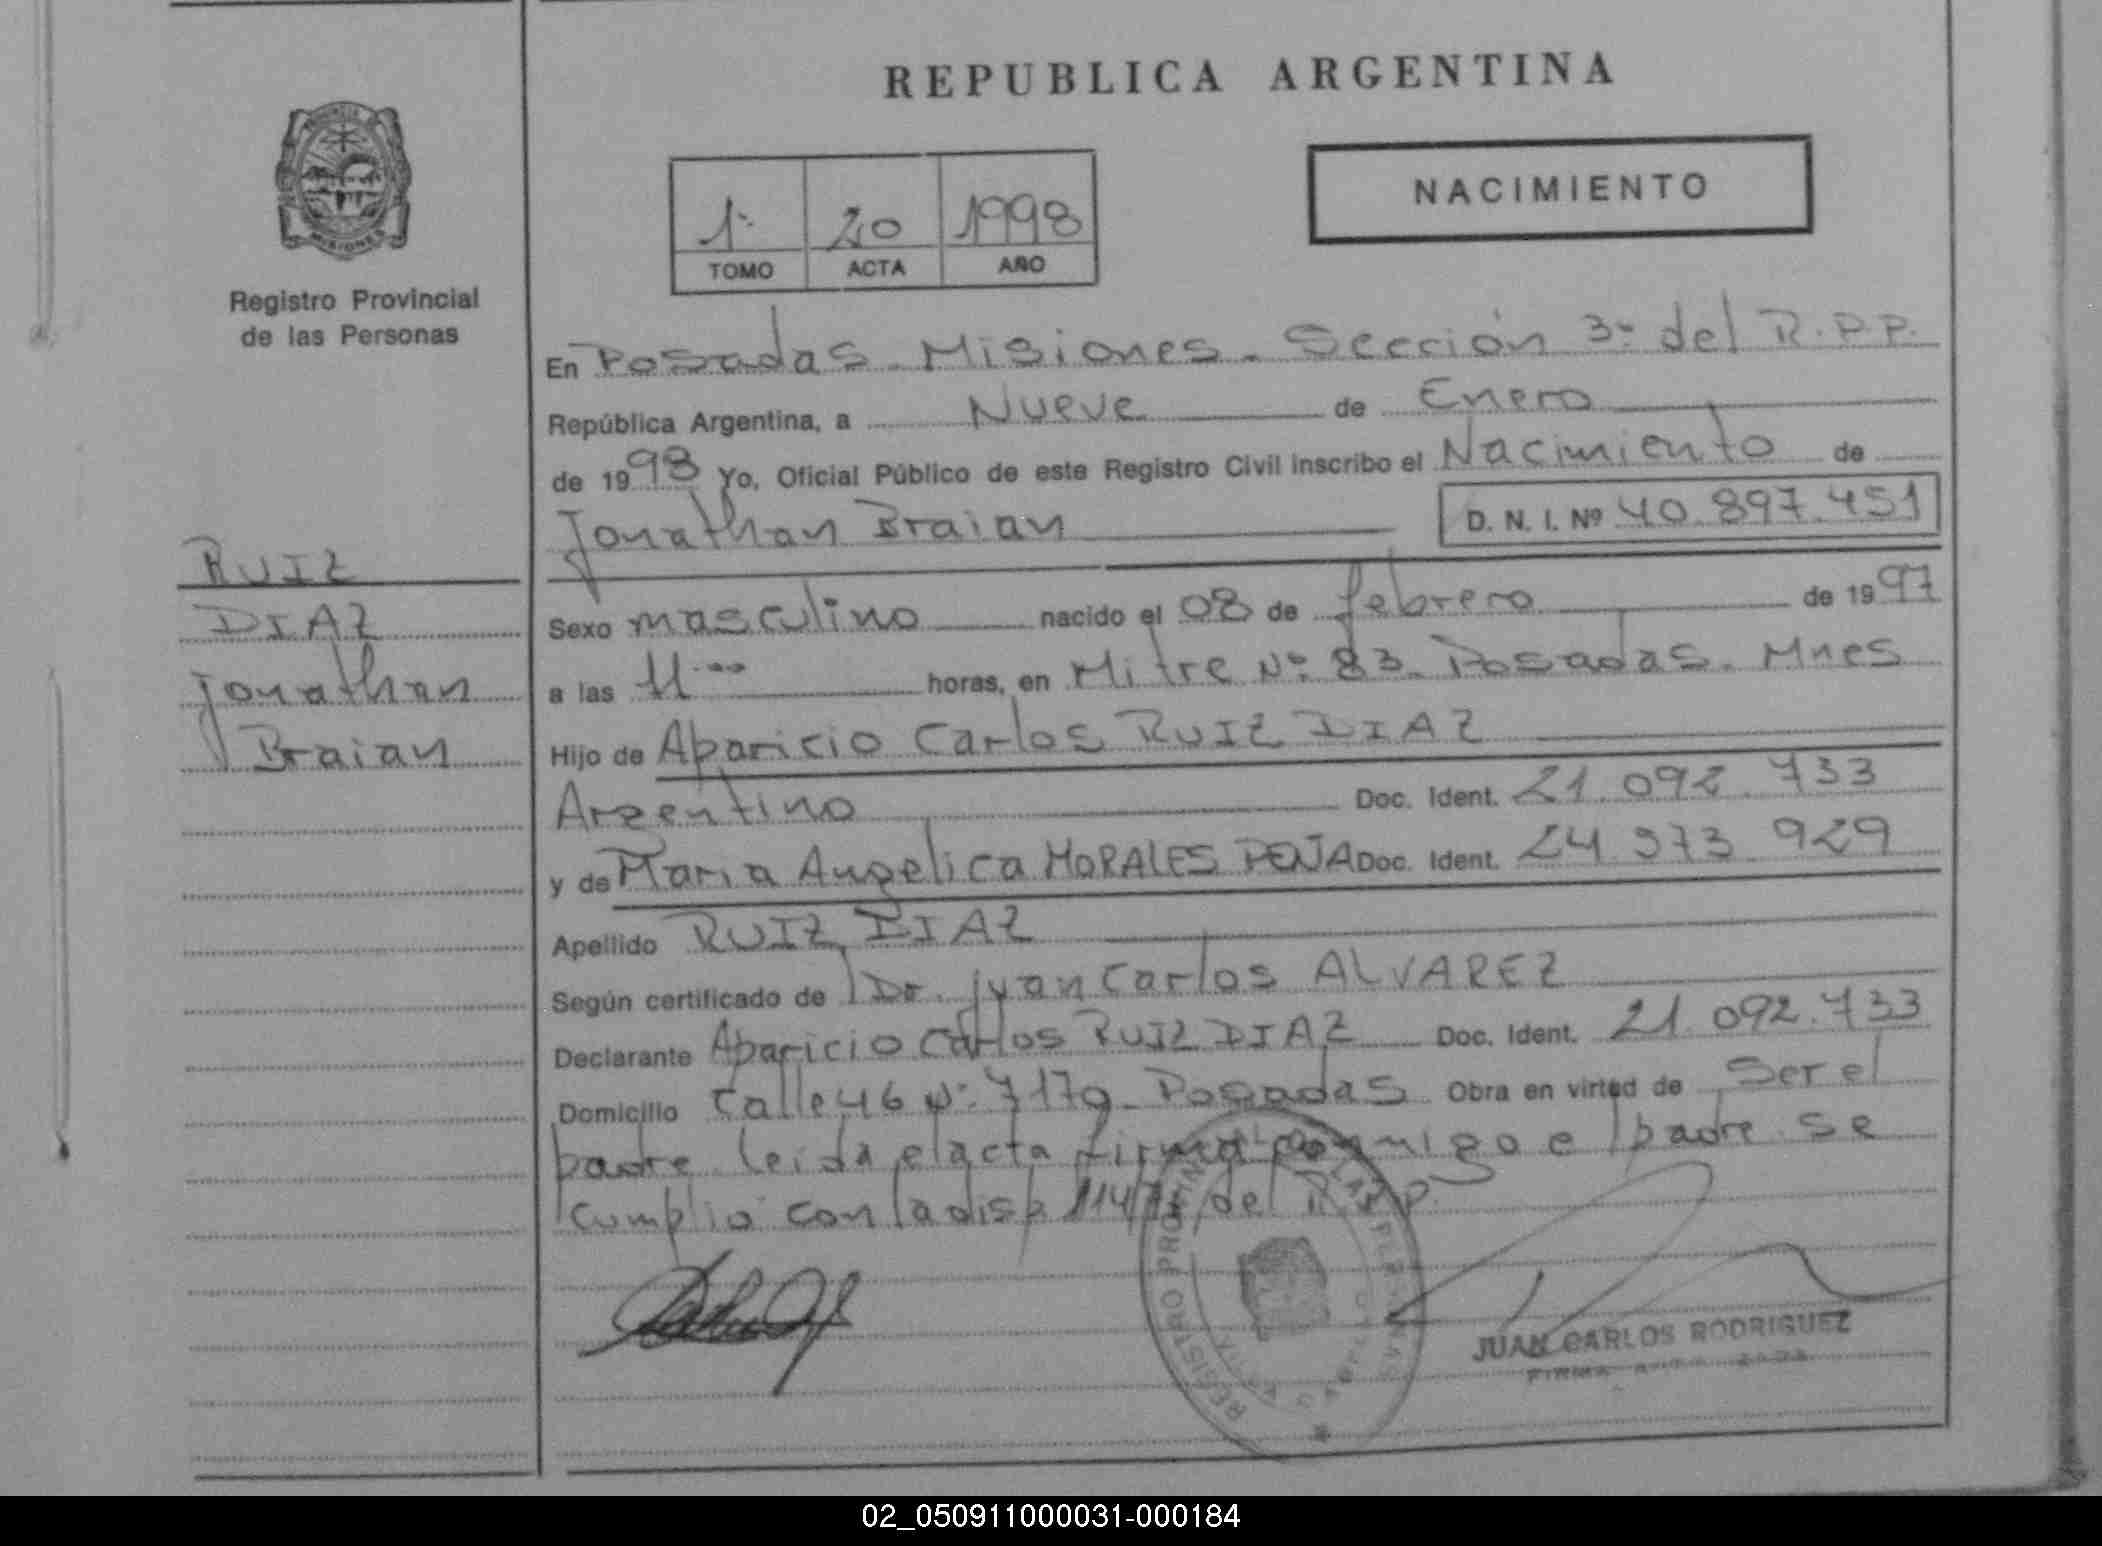 REPUBLICA ARGENTINA
PROVINCIA DE MISIONES
Registro Provincial
de las Personas
1º 20 1998
TOMO ACTA AÑO
NACIMIENTO
En Posadas. Misiones. Sección 3º del R.P.P.
República Argentina, a Nueve de Enero
de 1998 Yo, Oficial Público de este Registro Civil inscribo el Nacimiento de
Jonathan Braian
D. N. I. Nº 40.897.451
RUIZ
DIAZ
Jonathan
Braian
Sexo masculino nacido el 08 de febrero de 1997
a las 11 horas, en Mitre Nº 83. Posadas. Mnes
Hijo de Aparicio Carlos RUIZ DIAZ
Argentino Doc. Ident. 21.092.733
y de Maria Angelica MORALES Doc. Ident. 24.973.929
Apellido RUIZ DIAZ
Según certificado de Dr. Juan Carlos ALVAREZ
Declarante Aparicio Carlos RUIZ DIAZ Doc. Ident. 21.092.733
Domicilio Calle 46 Nº 7179 Posadas Obra en virtud de Ser el
padre. leida el acta firma conmigo el padre. se
cumplio con la disp. del R.P.P.
REGISTRO PROVINCIAL LAS PERSONAS
JUAN CARLOS RODRIGUEZ
FIRMA
02_050911000031-000184